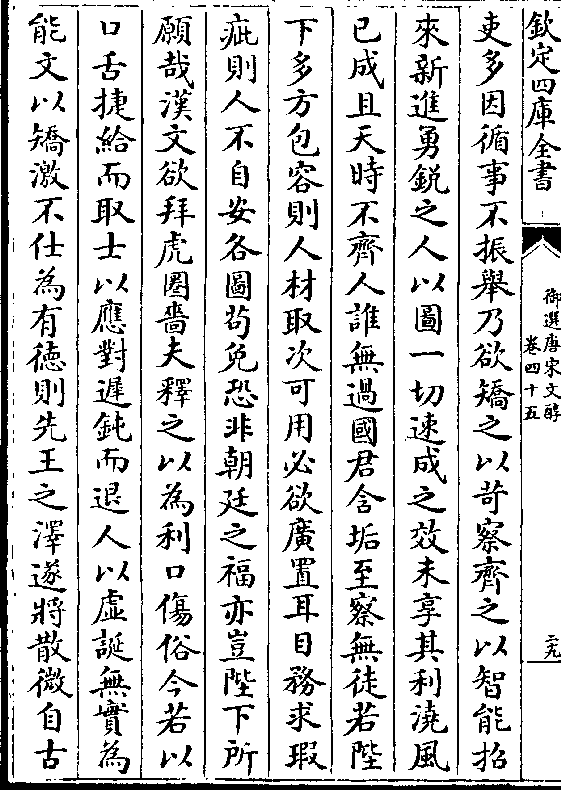 欽定四庫全書
御選唐宋文醇
卷四十五
二九
吏多因循事不振舉乃欲矯之以苛察齊之以智能招
來新進勇銳之人以圖一切速成之效未享其利澆風
已成且天時不齊人誰無過國君含垢至察無徒若陛
下多方包容則人材取次可用必欲廣置耳目務求瑕
疵則人不自安各圖苟免恐非朝廷之福亦豈陛下所
願哉漢文欲拜虎圈嗇夫釋之以為利口傷俗今若以
口舌捷給而取士以應對遲鈍而退人以虛誕無實為
能文以矯激不仕為有徳則先王之澤遂將散微自古